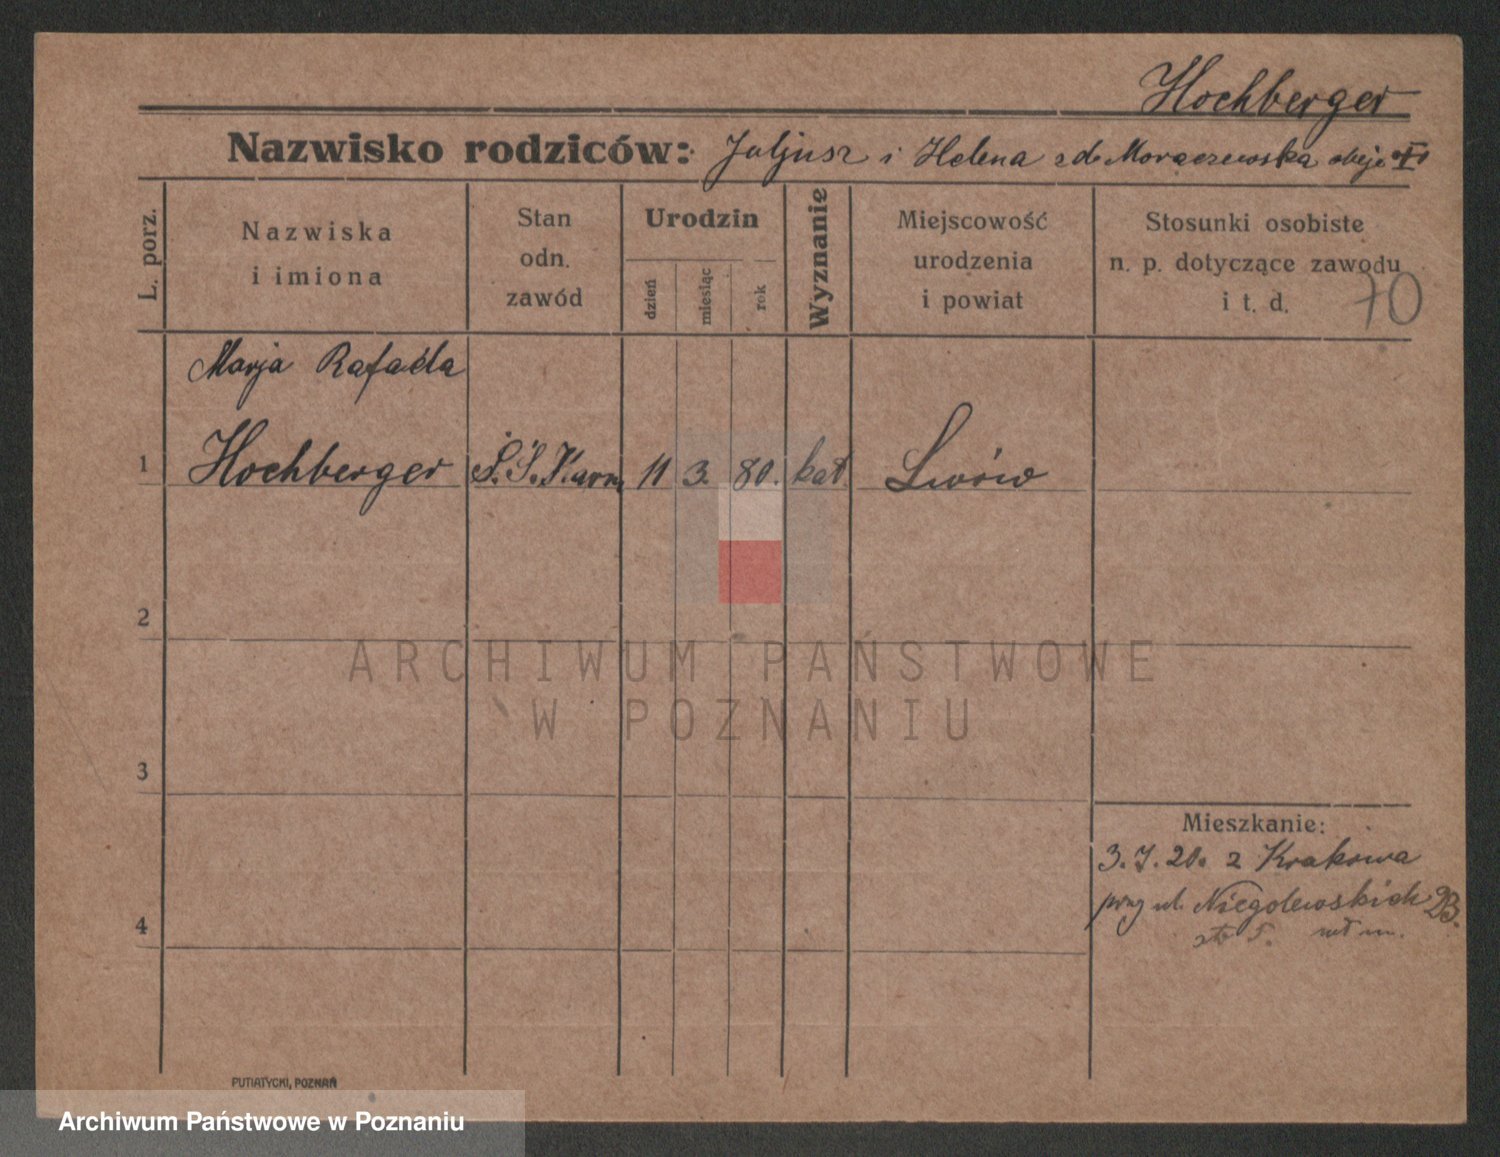 Hochberger
Nazwisko rodziców: Juljusz i Helena zd Moraczewska oboje
L. porz.
Nazwiska
i imiona
Stan
odn.
zawód
Urodzin
dzień
miesiąc
rok
Wyznanie
Miejscowość
urodzenia
i powiat
Stosunki osobiste
n. p. dotyczące zawodu
i t. d.
70
Marja Rafaela
1 Hochberger Ś.S. Karm. 11 3. 80. kat. Lwów
2
3
4
Mieszkanie:
3.7.20. z Krakowa
przy ul. Niegolewskich 23.
PUTIATYCKI, POZNAŃ
ARCHIWUM PAŃSTWOWE
W POZNANIU
Archiwum Państwowe w Poznaniu